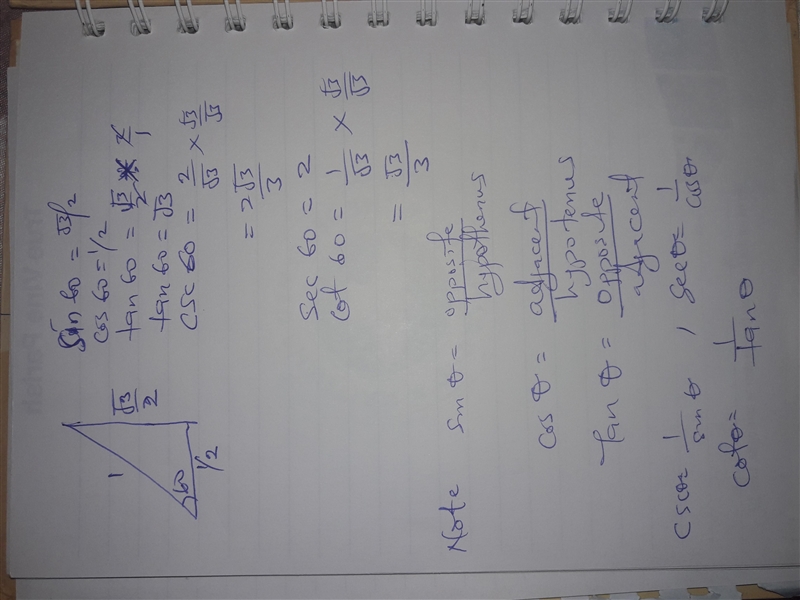 1
√3/2
60
1/2
Sin 60 = √3/2
cos 60 = 1/2
tan 60 = √3/2 × 2/1
tan 60 = √3
csc 60 = 2/√3 × √3/√3
= 2√3/3
Sec 60 = 2
Cot 60 = 1/√3 × √3/√3
= √3/3
Note sin θ = opposite/hypothenus
cos θ = adjacent/hypotenus
Tan θ = opposite/adjacent
Cscθ = 1/sin θ , secθ = 1/cosθ
cotθ = 1/tan θ